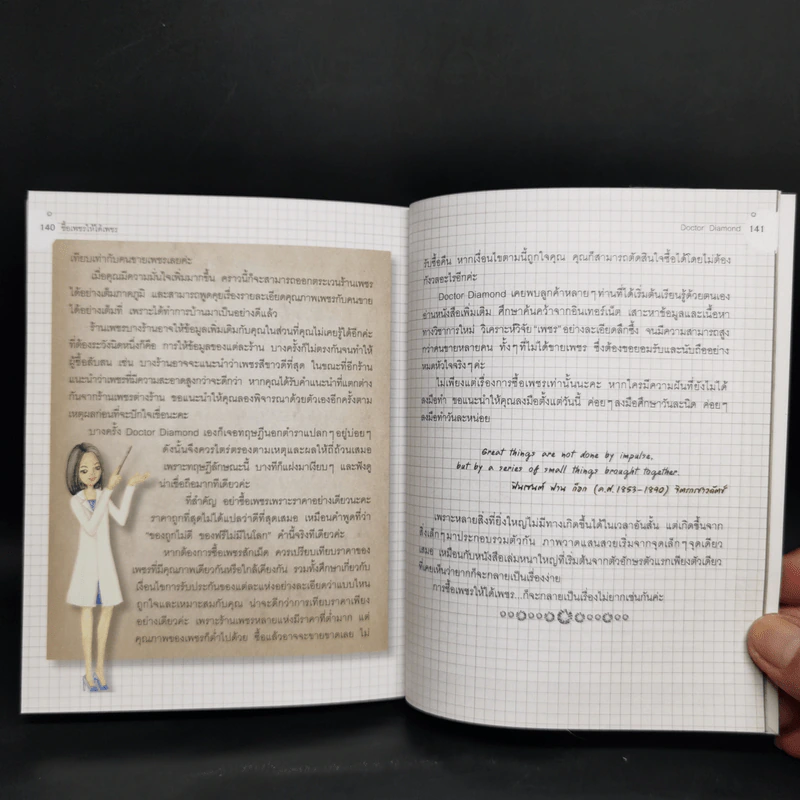 140 ซื้อเพชรให้ได้เพชร
เทียบเท่ากับคนขายเพชรเลยค่ะ
เมื่อคุณมีความมั่นใจเพิ่มมากขึ้น คราวนี้ก็จะสามารถออกตระเวนร้านเพชร
ได้อย่างเต็มภาคภูมิ และสามารถพูดคุยเรื่องรายละเอียดคุณภาพเพชรกับคนขาย
ได้อย่างเต็มที่ เพราะได้ทำการบ้านมาเป็นอย่างดีแล้ว
ร้านเพชรบางร้านอาจให้ข้อมูลเพิ่มเติมกับคุณในส่วนที่คุณไม่เคยรู้ได้อีกค่ะ
ที่ต้องระวังนิดหนึ่งก็คือ การให้ข้อมูลของแต่ละร้าน บางครั้งก็ไม่ตรงกันจนทำให้
ผู้ซื้อสับสน เช่น บางร้านอาจจะแนะนำว่าเพชรสีขาวดีที่สุด ในขณะที่อีกร้าน
แนะนำว่าเพชรที่มีความสะอาดสูงกว่าจะดีกว่า หากคุณได้รับคำแนะนำที่แตกต่าง
กันจากร้านเพชรต่างร้าน ขอแนะนำให้คุณลองพิจารณาด้วยตัวเองอีกครั้งตาม
เหตุผลก่อนที่จะปักใจเชื่อนะคะ
บางครั้ง Doctor Diamond เองก็เจอทฤษฎีนอกตำราแปลกๆ อยู่บ่อยๆ
ดังนั้นจึงควรไตร่ตรองตามเหตุและผลให้ถี่ถ้วนเสมอ
เพราะทฤษฎีลักษณะนี้ บางทีก็แฝงมาเงียบๆ และฟังดู
น่าเชื่อถือมากทีเดียวค่ะ
ที่สำคัญ อย่าซื้อเพชรเพราะราคาอย่างเดียวนะคะ
ราคาถูกที่สุดไม่ได้แปลว่าดีที่สุดเสมอ เหมือนคำพูดที่ว่า
“ของถูกไม่ดี ของฟรีไม่มีในโลก” คำนี้จริงทีเดียวค่ะ
หากต้องการซื้อเพชรสักเม็ด ควรเปรียบเทียบราคาของ
เพชรที่มีคุณภาพเดียวกันหรือใกล้เคียงกัน รวมทั้งศึกษาเกี่ยวกับ
เงื่อนไขการรับประกันของแต่ละแห่งอย่างละเอียดว่าแบบไหน
ถูกใจและเหมาะสมกับคุณ น่าจะดีกว่าการเทียบราคาเพียง
อย่างเดียวค่ะ เพราะร้านเพชรหลายแห่งมีราคาที่ต่ำมาก แต่
คุณภาพของเพชรก็ต่ำไปด้วย ซื้อแล้วอาจจะขายขาดเลย ไม่
Doctor Diamond 141
รับซื้อคืน หากเงื่อนไขตามนี้ถูกใจคุณ คุณก็สามารถตัดสินใจซื้อได้โดยไม่ต้อง
กังวลอะไรอีกค่ะ
Doctor Diamond เคยพบลูกค้าหลายๆ ท่านที่ได้เริ่มต้นเรียนรู้ด้วยตนเอง
อ่านหนังสือเพิ่มเติม ศึกษาค้นคว้าจากอินเทอร์เน็ต เสาะหาข้อมูลและเนื้อหา
ทางวิชาการใหม่ วิเคราะห์วิจัย “เพชร” อย่างละเอียดลึกซึ้ง จนมีความสามารถสูง
กว่าคนขายหลายคน ทั้งๆ ที่ไม่ได้ขายเพชร ซึ่งต้องขอยอมรับและนับถืออย่าง
หมดหัวใจจริงๆ ค่ะ
ไม่เพียงแต่เรื่องการซื้อเพชรเท่านั้นนะคะ หากใครมีความฝันที่ยังไม่ได้
ลงมือทำ ขอแนะนำให้คุณลงมือตั้งแต่วันนี้ ค่อยๆ ลงมือศึกษาวันละนิด ค่อยๆ
ลงมือทำวันละหน่อย
Great things are not done by impulse,
but by a series of small things brought together.
ฟินเซนต์ ฟาน ก็อก (ค.ศ. 1853-1890) จิตรกรชาวดัตช์
เพราะหลายสิ่งที่ยิ่งใหญ่ไม่มีทางเกิดขึ้นได้ในเวลาอันสั้น แต่เกิดขึ้นจาก
สิ่งเล็กๆ มาประกอบรวมตัวกัน ภาพวาดแสนสวยเริ่มจากจุดเล็กๆ จุดเดียว
เสมอ เหมือนกับหนังสือเล่มหนาใหญ่ที่เริ่มต้นจากตัวอักษรตัวแรกเพียงตัวเดียว
ที่เคยเห็นว่ายากก็จะกลายเป็นเรื่องง่าย
การซื้อเพชรให้ได้เพชร...ก็จะกลายเป็นเรื่องไม่ยากเช่นกันค่ะ